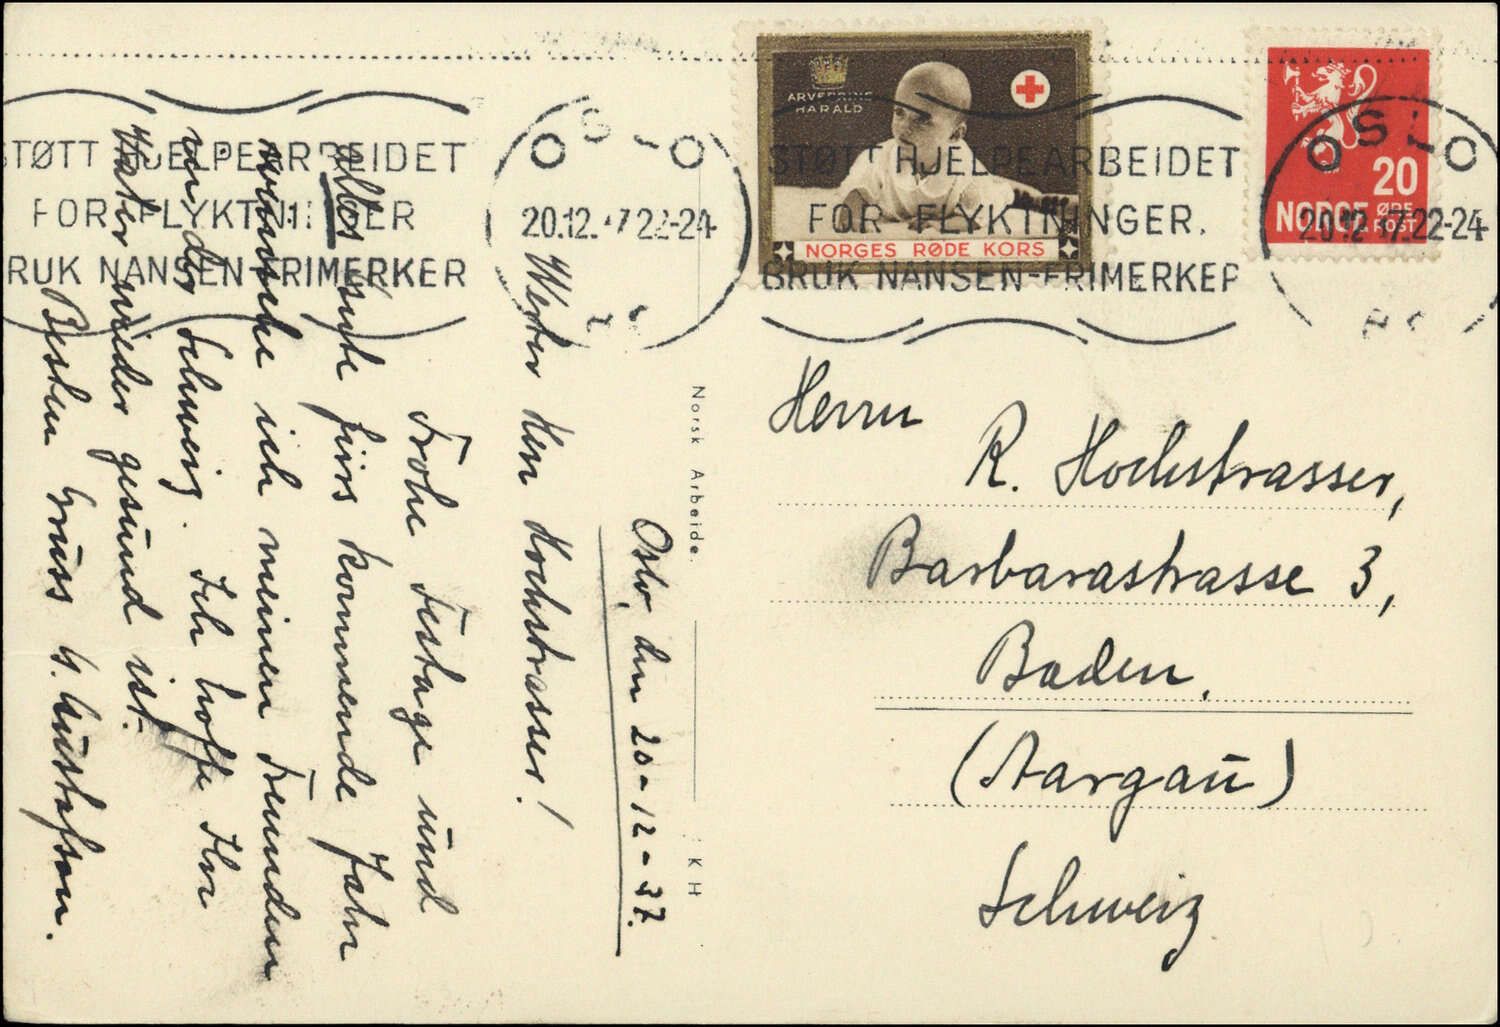 STØTT HJELPEARBEIDET
FOR FLYKTNINGER
BRUK NANSEN-FRIMERKER
OSLO
20.12.37.22-24
ARVEPRINS
HARALD
NORGES RØDE KORS
STØTT HJELPEARBEIDET
FOR FLYKTNINGER.
BRUK NANSEN-FRIMERKER
20
NORGE ØRE
POST
OSLO
20.12.37.22-24
Norsk Arbeide.
KH
Oslo, den 20-12-37.
Werter Herr Hochstrasser!
Frohe Festage und
alles Gute fürs kommende Jahr
wünsche ich meinen Freunden
in der Schweiz. Ich hoffe Ihr
Vater wieder gesund ist.
Besten Gruss G. Gustafson.
Herrn
R. Hochstrasser,
Barbarastrasse 3,
Baden,
(Aargau)
Schweiz